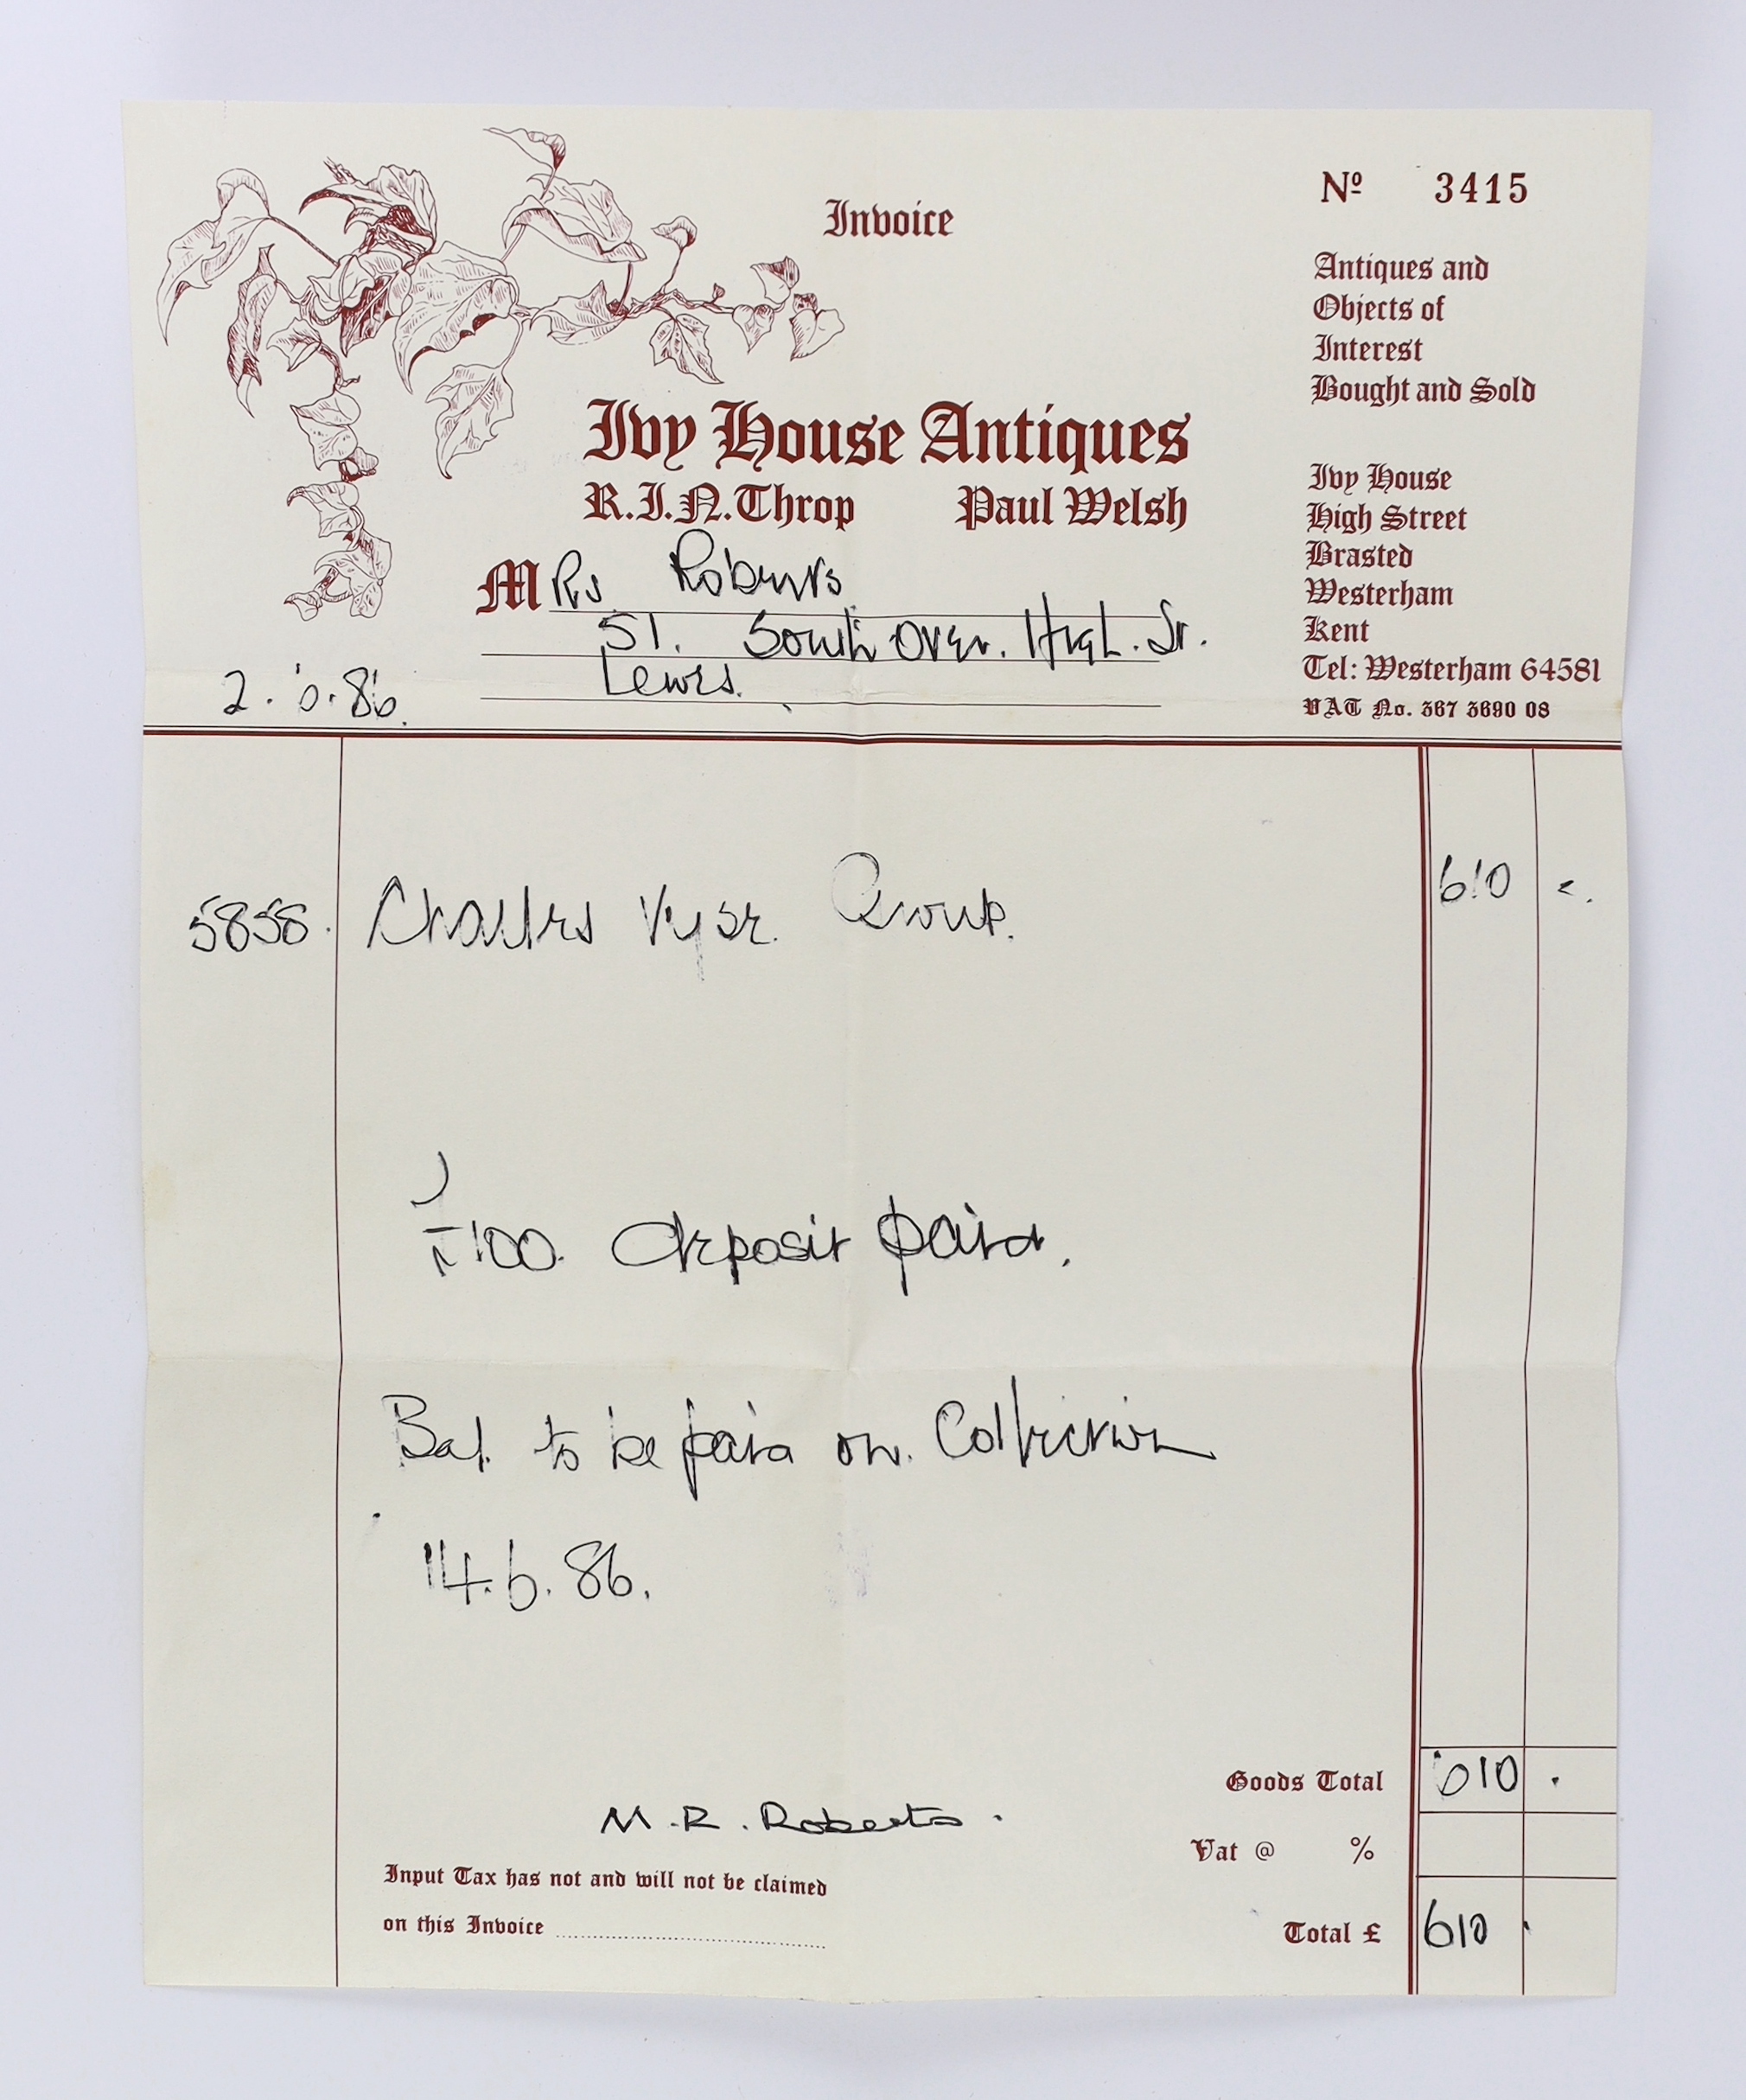 Invoice
Nº 3415
Antiques and
Objects of
Interest
Bought and Sold
Ivy House Antiques
R.I.N. Throp Paul Welsh
Ivy House
High Street
Brasted
Westerham
Kent
Tel: Westerham 64581
VAT No. 367 3690 08
MRs Roberts
51. South Over. High. St.
Lewes.
2. 6. 86.
5858. Charles Vyse Group. 610
£100. deposit paid.
Bal. to be paid on. Collection
14.6.86.
Goods Total 610 .
M.R. Roberts.
Vat @ %
Input Tax has not and will not be claimed
on this Invoice
Total £ 610 .